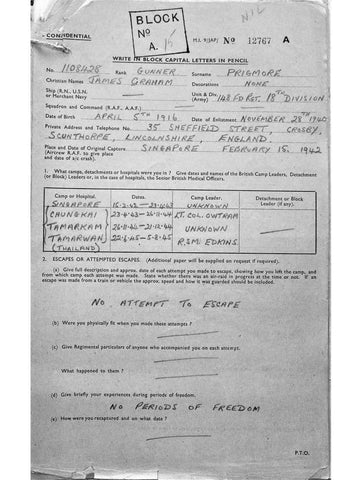 NIL
BLOCK
No
A. 15
CONFIDENTIAL
M.I. 9/JAP/ No 12767 A
WRITE IN BLOCK CAPITAL LETTERS IN PENCIL
No. 1108428 Rank GUNNER Surname PRIGMORE
Christian Names JAMES GRAHAM Decorations NONE
Ship (R.N., U.S.N. or Merchant Navy) Unit & Div. (Army) 148 FD RGT. 18TH DIVISION
Squadron and Command (R.A.F., A.A.F.)
Date of Birth APRIL 5TH 1916 Date of Enlistment NOVEMBER 28TH 1940
Private Address and Telephone No. 35 SHEFFIELD STREET, CROSBY,
SCUNTHORPE, LINCOLNSHIRE, ENGLAND.
Place and Date of Original Capture SINGAPORE FEBRUARY 15. 1942
(Aircrew R.A.F. to give place and date of a/c crash).
1. What camps, detachments or hospitals were you in? Give dates and names of the British Camp Leaders, Detachment
(or Block) Leaders or, in the case of hospitals, the Senior British Medical Officers.
Camp or Hospital. Dates. Camp Leader. Detachment or Block Leader (if any).
SINGAPORE 15-2-42 UNKNOWN
CHUNGKAI LT. COL. OWTRAM
TAMARKAM UNKNOWN
TAMARWAN 22-1-45 - 5-8-45 R.S.M EDKINS.
(THAILAND)
2. ESCAPES OR ATTEMPTED ESCAPES. (Additional paper will be supplied on request if required).
(a) Give full description and approx. date of each attempt you made to escape, showing how you left the camp, and
from which camp each attempt was made. State whether there was an air-raid in progress at the time or not. If an
escape was made from a train or vehicle the approx. speed and how it was guarded should be included.
NO ATTEMPT TO ESCAPE
(b) Were you physically fit when you made these attempts?
(c) Give Regimental particulars of anyone who accompanied you on each attempt.
What happened to them?
(d) Give briefly your experiences during periods of freedom.
NO PERIODS OF FREEDOM
(e) How were you recaptured and on what date?
P.T.O.